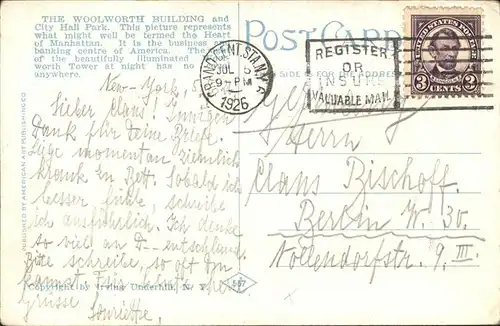 THE WOOLWORTH BUILDING and
City Hall Park. This picture represents
what might well be termed the Heart
of Manhattan. It is the business
banking centre of America. The
of the beautifully illuminated
worth Tower at night has no
anywhere.
POST CARD
SIDE IS FOR THE ADDRESS
GRAND CENT. STA. N.Y.
JUL 6
9-PM
1926
REGISTER
OR
INSURE
VALUABLE MAIL
UNITED STATES POSTAGE
3 CENTS 3
New-York,
Lieber Claus! Innigen
Dank für Deine Briefe.
Liege momentan ziemlich
krank im Bett. Sobald ich
besser fühle, schreibe
ich ausführlich. Ich denke
so viel an D.
Bitte schreibe, so oft Du
kannst
Grüsse
Henriette.
Germany
Herrn
Claus Bischoff
Berlin W. 30.
Nollendorfstr. 9 III.
PUBLISHED BY AMERICAN ART PUBLISHING CO
Copyright by Irving Underhill, N. Y.
557